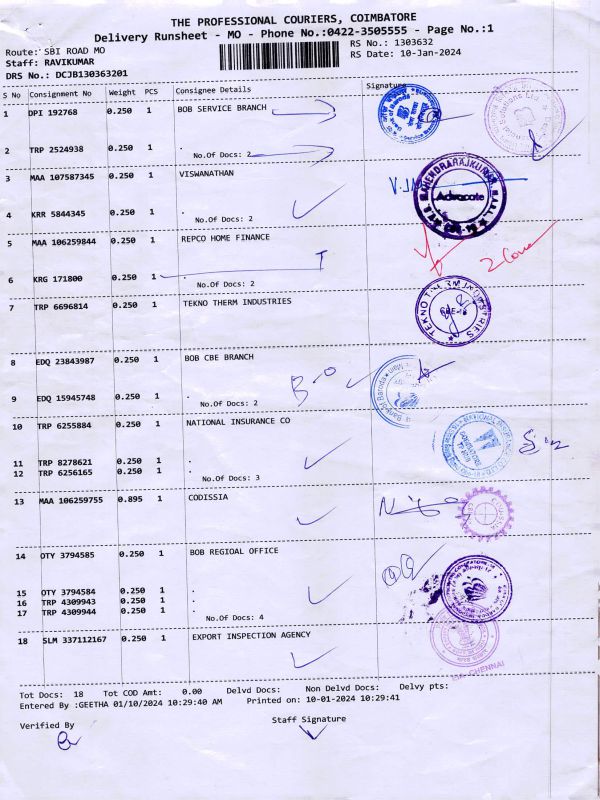 THE PROFESSIONAL COURIERS, COIMBATORE
Delivery Runsheet - MO - Phone No.:0422-3505555 - Page No.:1
Route: SBI ROAD MO
RS No.: 1303632
Staff: RAVIKUMAR
RS Date: 10-Jan-2024
DRS No.: DCJB130363201
S No Consignment No Weight PCS Consignee Details Signature
1 DPI 192768 0.250 1 BOB SERVICE BRANCH
2 TRP 2524938 0.250 1 .
No.Of Docs: 2
3 MAA 107587345 0.250 1 VISWANATHAN
Advocate
4 KRR 5844345 0.250 1 .
No.Of Docs: 2
5 MAA 106259844 0.250 1 REPCO HOME FINANCE
6 KRG 171800 0.250 1 .
No.Of Docs: 2
7 TRP 6696814 0.250 1 TEKNO THERM INDUSTRIES
8 EDQ 23843987 0.250 1 BOB CBE BRANCH
9 EDQ 15945748 0.250 1 .
No.Of Docs: 2
10 TRP 6255884 0.250 1 NATIONAL INSURANCE CO
11 TRP 8278621 0.250 1 .
12 TRP 6256165 0.250 1 .
No.Of Docs: 3
13 MAA 106259755 0.895 1 CODISSIA
14 OTY 3794585 0.250 1 BOB REGIOAL OFFICE
15 OTY 3794584 0.250 1 .
16 TRP 4309943 0.250 1 .
17 TRP 4309944 0.250 1 .
No.Of Docs: 4
18 SLM 337112167 0.250 1 EXPORT INSPECTION AGENCY
Tot Docs: 18 Tot COD Amt: 0.00 Delvd Docs: Non Delvd Docs: Delvy pts:
Entered By :GEETHA 01/10/2024 10:29:40 AM Printed on: 10-01-2024 10:29:41
Verified By
Staff Signature